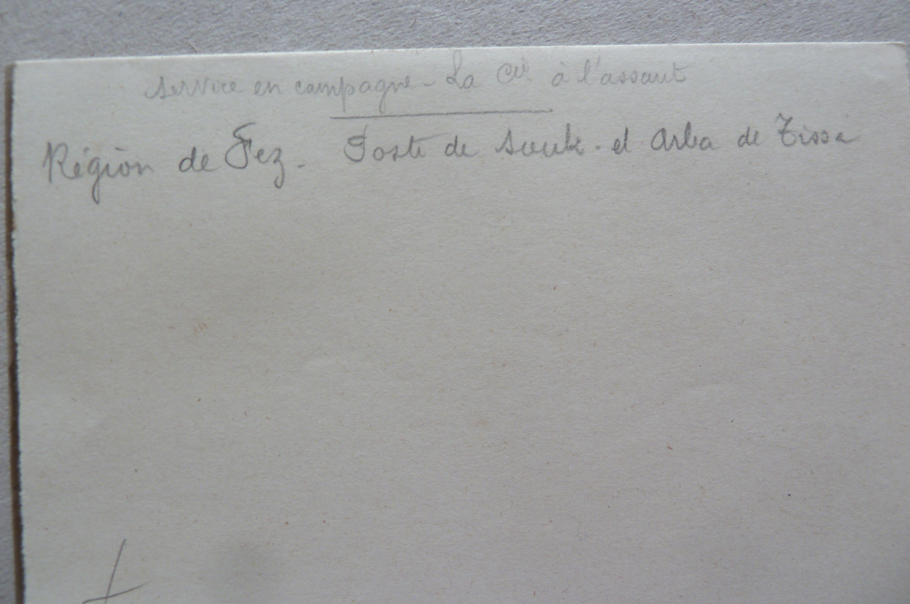 Service en campagne - La Cie à l'assaut
Région de Fez. Poste de Souk. el Arba de Tissa